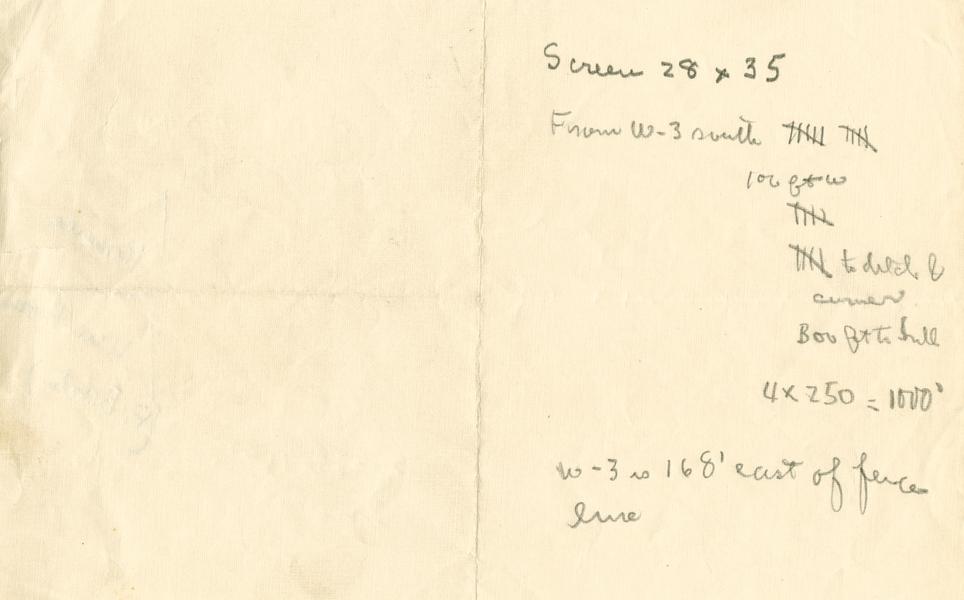 Screen 28 x 35
From W-3 south
100 ft w
to ditch &
corner
800 ft to hill
4 x 250 = 1000'
W-3 is 168' east of fence
line